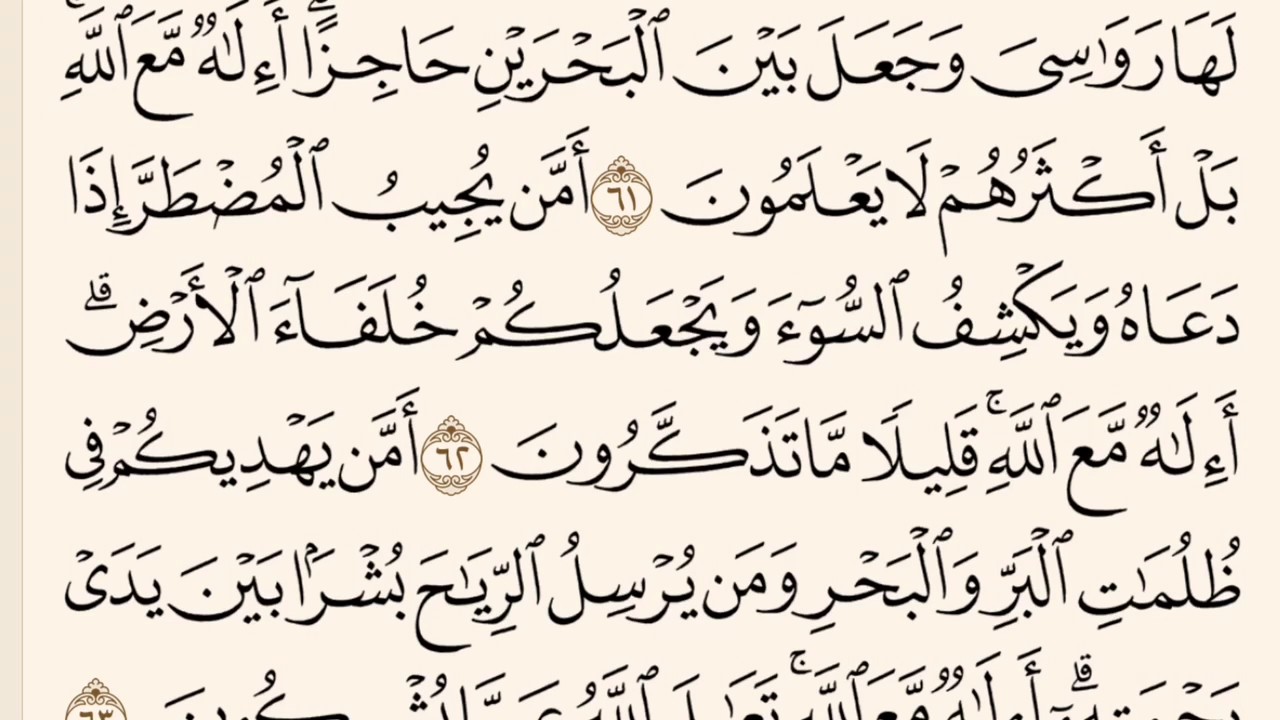 لَهَا رَوَٰسِىَ وَجَعَلَ بَيْنَ ٱلْبَحْرَيْنِ حَاجِزًاۗ أَءِلَـٰهٌ مَّعَ ٱللَّهِۚ
بَلْ أَكْثَرُهُمْ لَا يَعْلَمُونَ ٦١ أَمَّن يُجِيبُ ٱلْمُضْطَرَّ إِذَا
دَعَاهُ وَيَكْشِفُ ٱلسُّوٓءَ وَيَجْعَلُكُمْ خُلَفَآءَ ٱلْأَرْضِۗ
أَءِلَـٰهٌ مَّعَ ٱللَّهِۚ قَلِيلًا مَّا تَذَكَّرُونَ ٦٢ أَمَّن يَهْدِيكُمْ فِى
ظُلُمَـٰتِ ٱلْبَرِّ وَٱلْبَحْرِ وَمَن يُرْسِلُ ٱلرِّيَـٰحَ بُشْرًۢا بَيْنَ يَدَىْ
رَحْمَتِهِۦٓۗ أَءِلَـٰهٌ مَّعَ ٱللَّهِۚ تَعَـٰلَى ٱللَّهُ عَمَّا يُشْرِكُونَ ٦٣